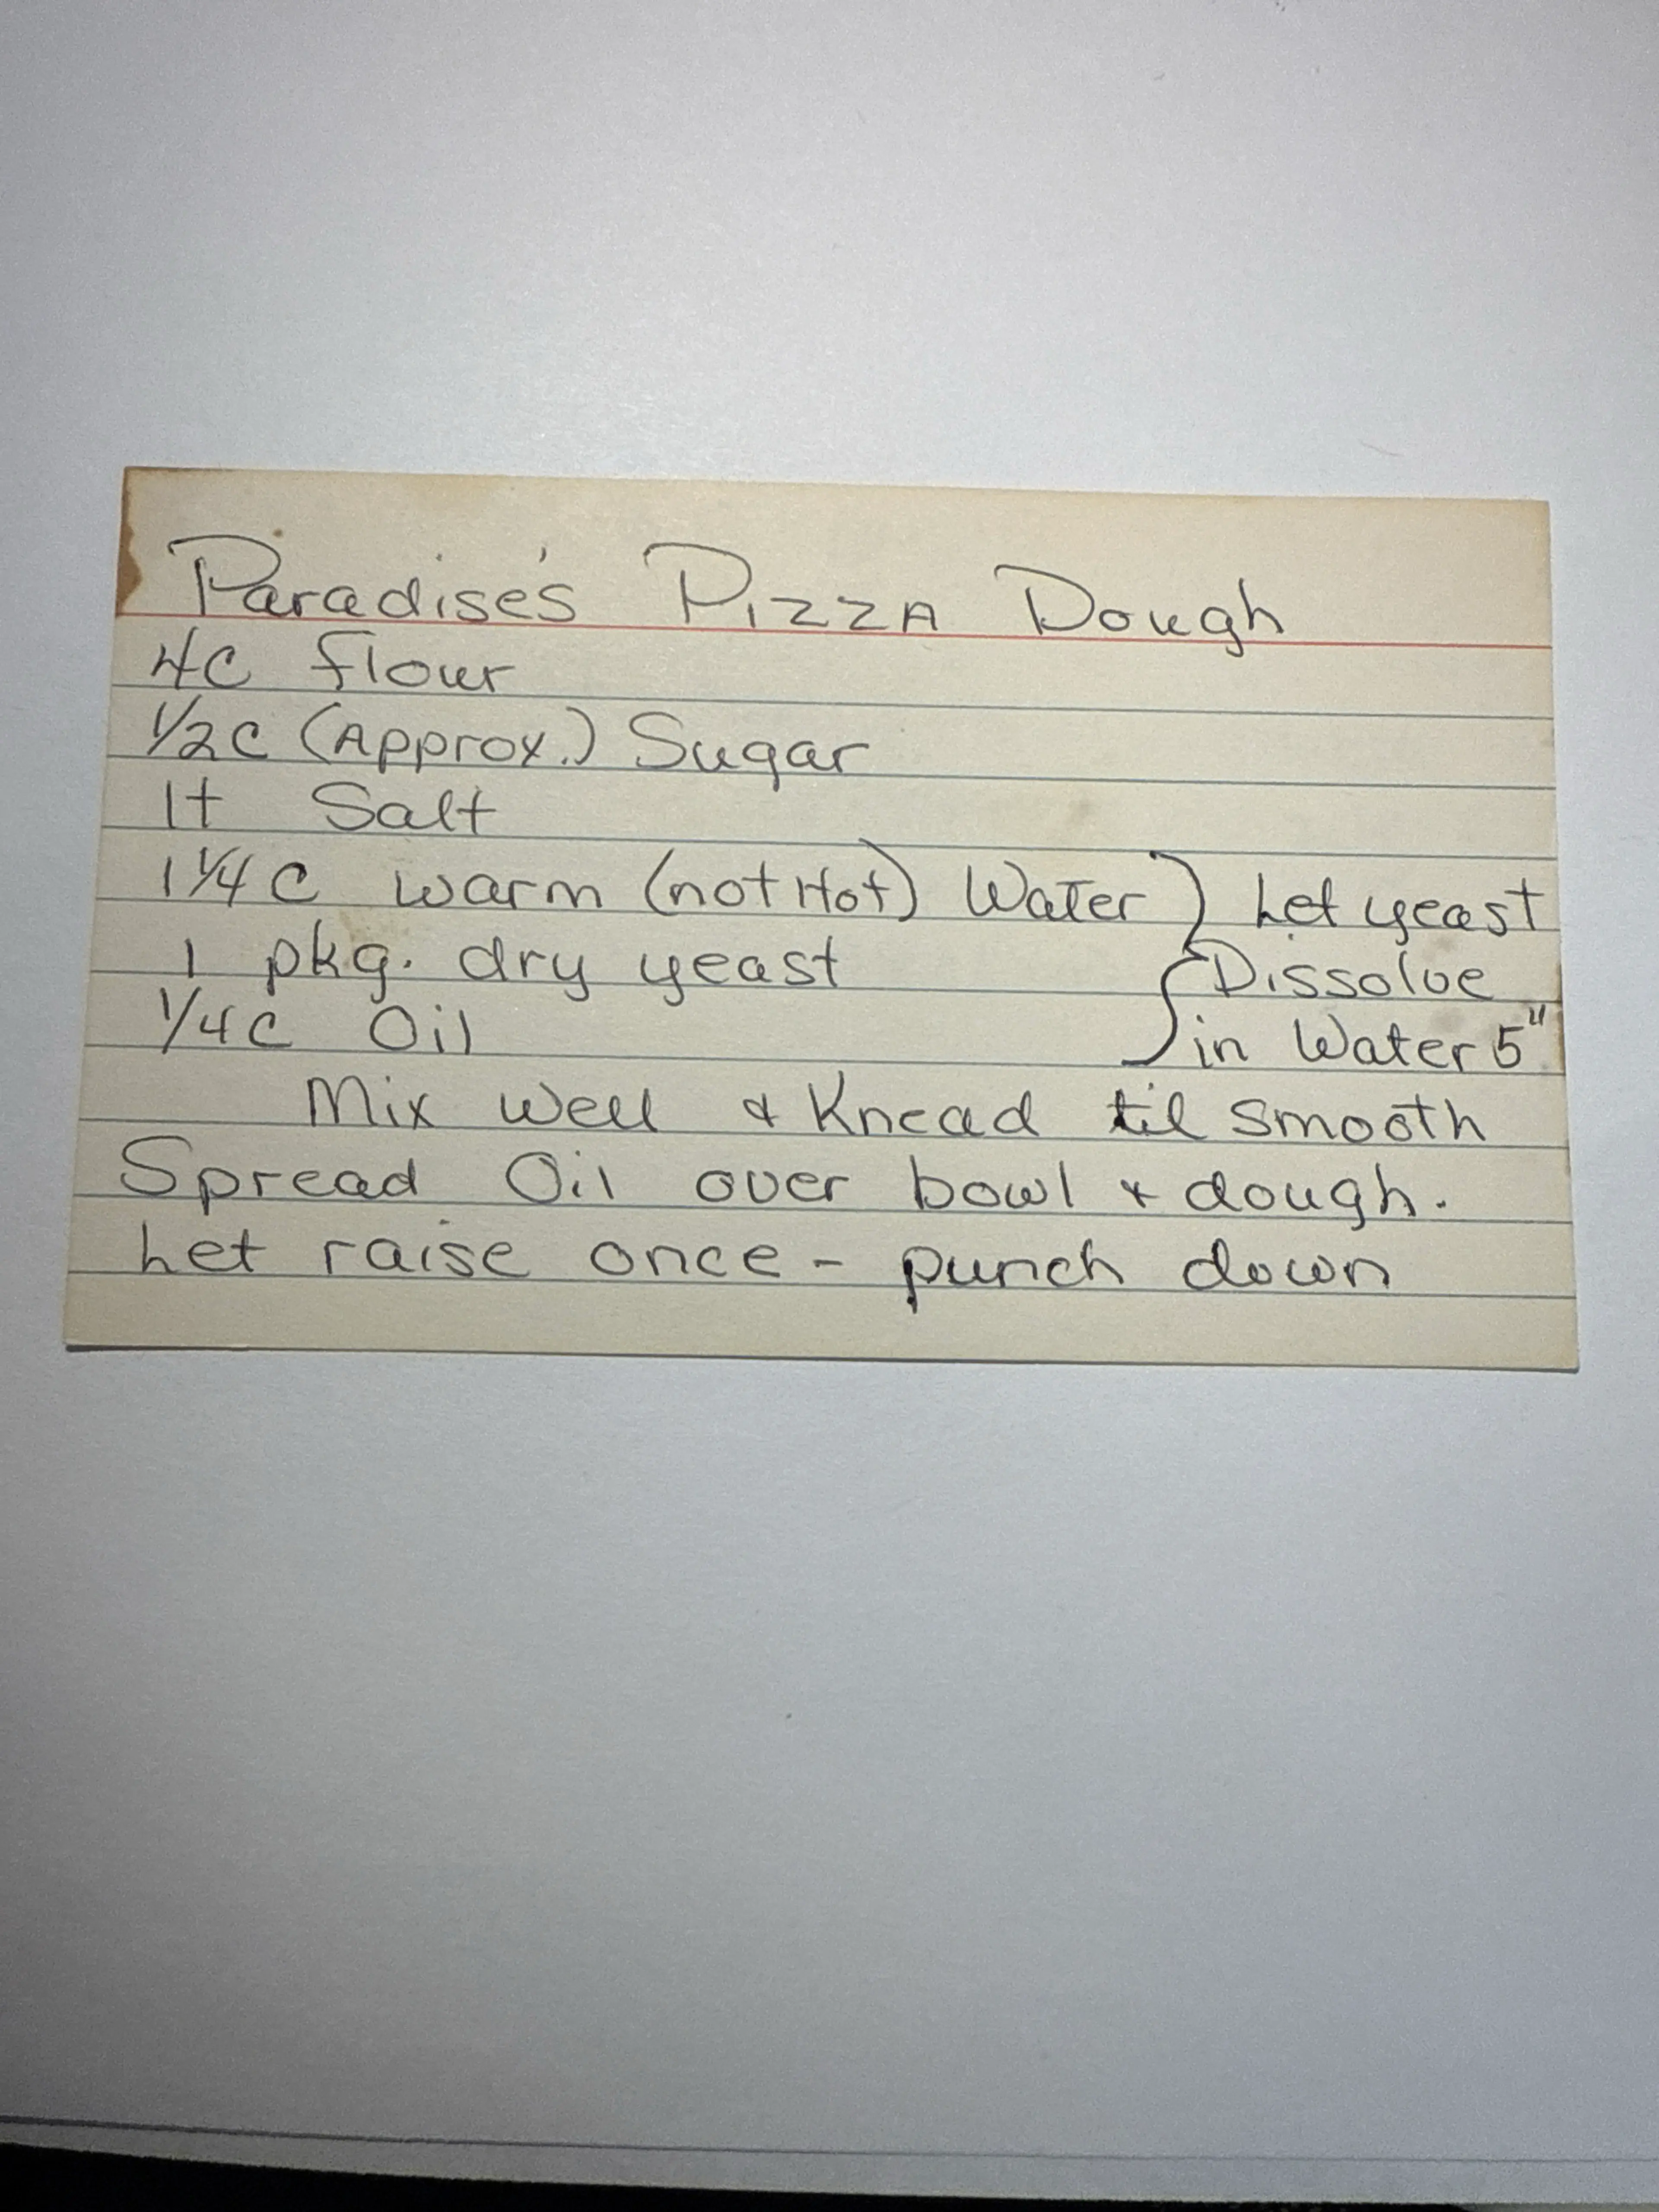 Paradise's Pizza Dough
4C flour
1/2C (Approx.) Sugar
1t Salt
1 1/4 C warm (not Hot) Water } Let yeast
1 pkg. dry yeast { Dissolve
1/4C Oil in Water 5"
Mix Well & Knead til smooth
Spread Oil over bowl & dough.
Let raise once - punch down